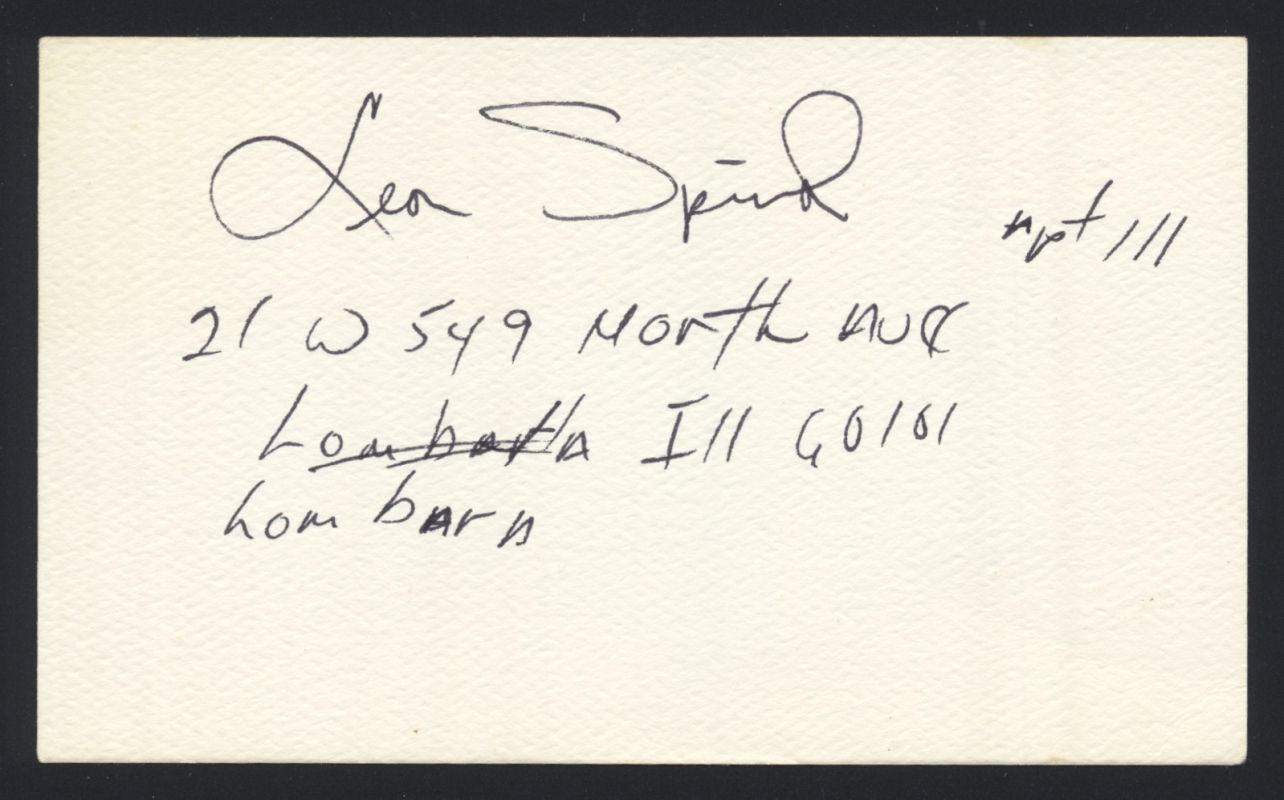 Leon Spinks
apt 111
21 W 549 North Ave
Lombard Ill 60101
Lombard